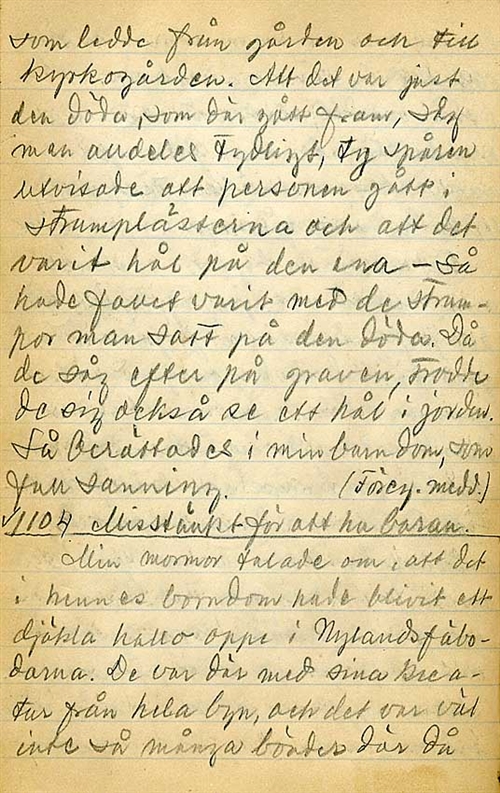 som ledde från gården och till
kyrkogården. Att det var just
den döda, som där gått fram, såg
man alldeles tydligt, ty spåren
utvisade att personen gått i
strumplästerna och att det
varit hål på den ena – Så
hade favet varit med de strum-
por man satt på den döda. Då
de såg efter på graven, trodde
de sig också se ett hål i jorden.
Så berättades i min barndom, som
full sanning. (Förey. medd.)
1104 Misstänkt för att ha baran.
Min mormor talade om, att det
i hennes barndom hade blivit ett
djäkla hallo oppe i Nylandsfäbo-
darna. De var där med sina krea-
tur från hela byn, och det var väl
inte så många bönder där då